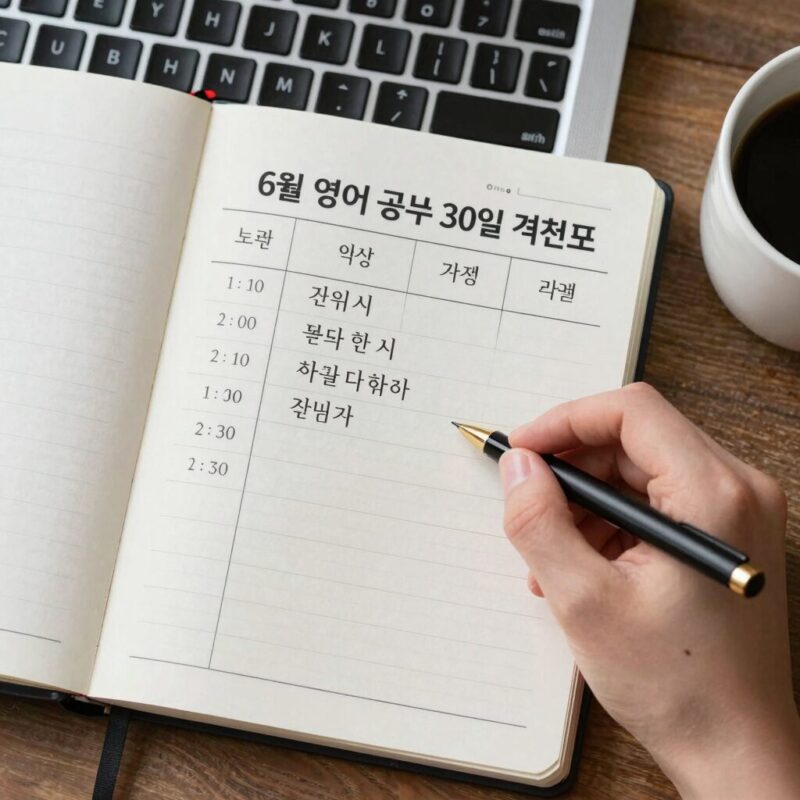 6월 영어 공부 30일 격천포
노관 익상 가쟁 라괠
1:10 잔위시
2:00 한 시
2:10 하괄 다화하
1:30
2:30
2:30
Y
U
H
J
K
L
B
N
M